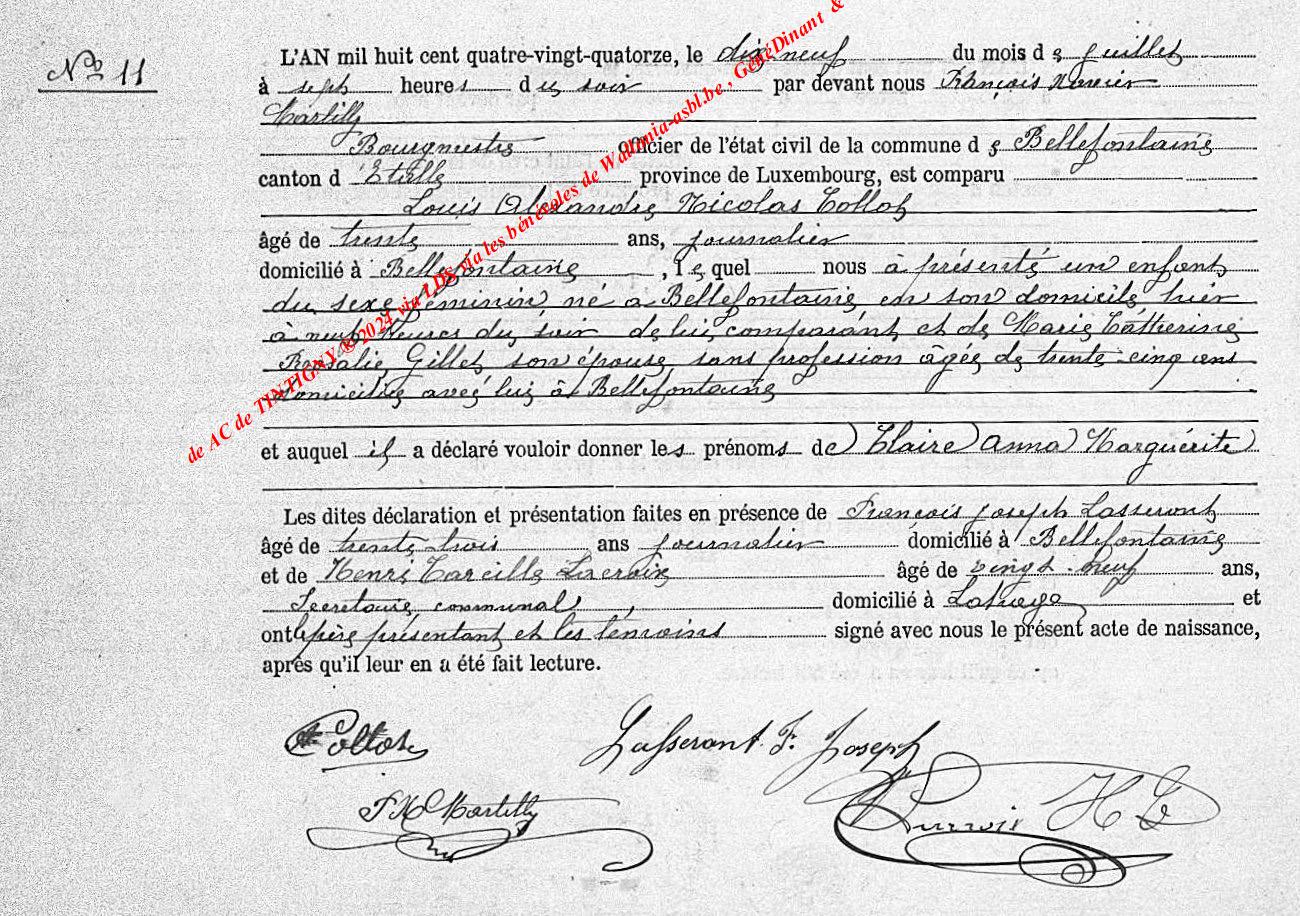 de AC de TINTIGNY ®2024 via LDS via les bénévoles de Wallonia-asbl.be , GénéDinant &
No 11
L'AN mil huit cent quatre-vingt-quatorze, le dix neuf du mois de juillet
à sept heures du soir par devant nous François Xavier
Martilly
Bourgmestre officier de l'état civil de la commune de Bellefontaine
canton d'Etalle province de Luxembourg, est comparu
Louis Alexandre Nicolas Collot
âgé de trente ans, journalier
domicilié à Bellefontaine, lequel nous à présenté un enfant
du sexe féminin né à Bellefontaine en son domicile hier
à neuf heures du soir de lui comparant et de Marie Catherine
Rosalie Gillet son épouse sans profession âgée de trente cinq ans
domiciliée avec lui à Bellefontaine
et auquel il a déclaré vouloir donner les prénoms de Claire Anna Marguérite
Les dites déclaration et présentation faites en présence de François Joseph Lasseront
âgé de trente trois ans journalier domicilié à Bellefontaine
et de Henri Lacroix âgé de vingt-neuf ans,
Secrétaire communal, domicilié à et
ont le père présentant et les témoins signé avec nous le présent acte de naissance,
après qu'il leur en a été fait lecture.
Collot
Lasseront F. Joseph
F X Martilly